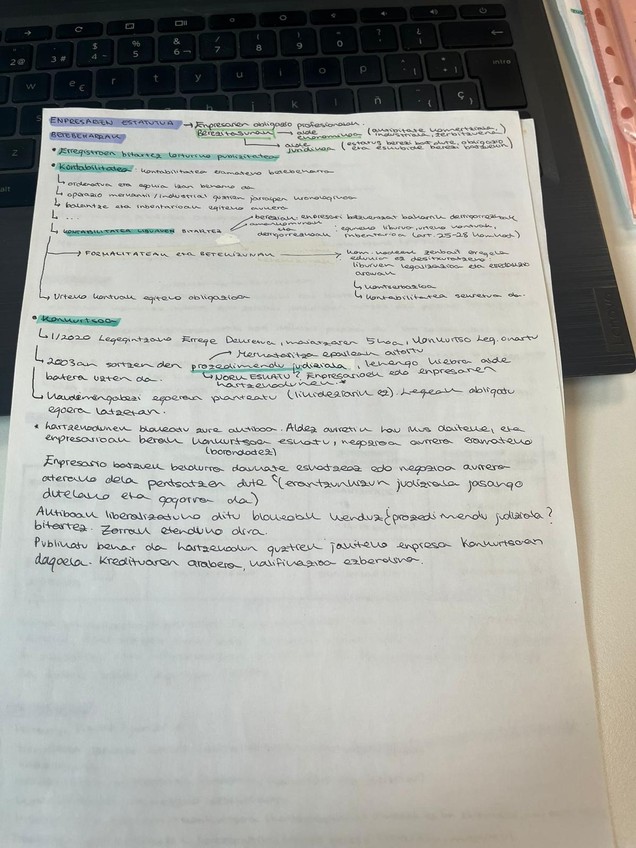 ENPRESAREN ESTATUTUA → Enpresaren obligazio profesionalak.
BETEBEHARRAK
BEREZITASUNAK → alde ekonomikoa (antolatzaile komertziala, industriala, zerbitzuena)
→ alde juridikoa (estatus berezi bat dute, obligazio eta eskubide berezi batzuekin)
• Erregistroen bitartez lorturiko publizitatea
• Kontabilitatea: kontabilitatea eramateko betebeharra
↳ ordenatua eta egokia izan beharko da
↳ operazio merkantil/industrial guztien jarraipen kronologikoa
↳ balantze eta inbentarioak egiteko aukera
↳ ...
↳ KONTABILITATEA LIBURUEN BITARTEZ
bereziak: enpresari bezeroezat bakarrik derrigorrezkoak
eta derrigorrezkoak: eguneko liburua, urteko kontuak, inbentarioa (art. 25-28 KomKod)
→ FORMALITATEAK ETA BETEKIZUNAK → kom. kodeak zenbait erregela
edukin ez desitxuratzeko
liburuen legalizazioa eta
arauan
↳ kontserbazioa
↳ kontabilitatea sekretua da.
↳ Urteko kontuak egiteko obligazioa
• Konkurtsoa
↳ 1/2020 Legegintzako Errege Dekretua, maiatzaren 5koa, Konkurtso Leg. onartu
→ Merkataritza epaileak aztertu
↳ 2003an sortzen den prozedimendu judiziala, lehengo kiebra alde
batera uzten da.
↳ NORK ESKATU? Enpresarioek edo enpresaren
hartzekodunek.*
↳ Kaudimengabezi egoeran planteatu (likideziarik ez). Legeak obligatu
egoera latzetan.
* hartzekodunen blokeatu zure aktiboa. Aldez aurretik hau hus daiteke, eta
enpresarioak berak konkurtsoa eskatu, negozioa aurrera eramateko
(borondatez)
Enpresario batzuek beldurra daukate eskatzeaz edo negozioa aurrera
aterako dela pentsatzen dute (erantzukizun judiziala jasango
dutelako eta gogorra da)
Aktiboak liberalizatuko ditu blokeoak kenduz ¿prozedimendu judiziala?
bitartez. Zorrak etenduko dira.
Publikatu behar da hartzekodun guztiek jakiteko enpresa konkurtsoan
dagoela. Kredituaren arabera, kalifikazioa ezberdina.